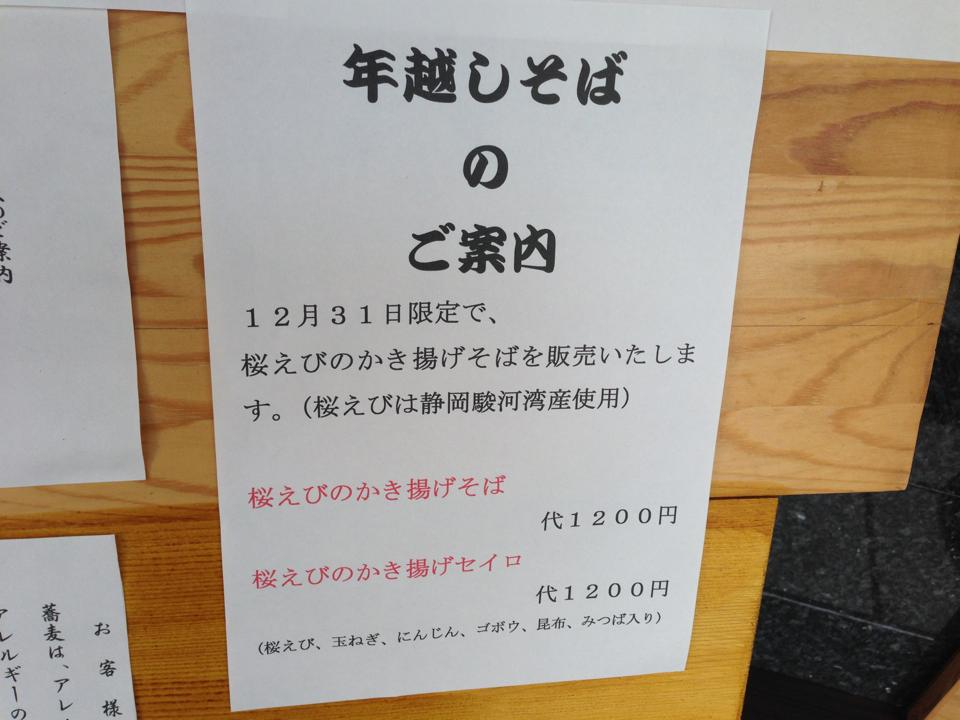 年越しそば
の
ご案内
１２月３１日限定で、
桜えびのかき揚げそばを販売いたしま
す。（桜えびは静岡駿河湾産使用）
桜えびのかき揚げそば
代１２００円
桜えびのかき揚げセイロ
代１２００円
（桜えび、玉ねぎ、にんじん、ゴボウ、昆布、みつば入り）
ご案内
お客様
蕎麦は、アレ
アレルギーの